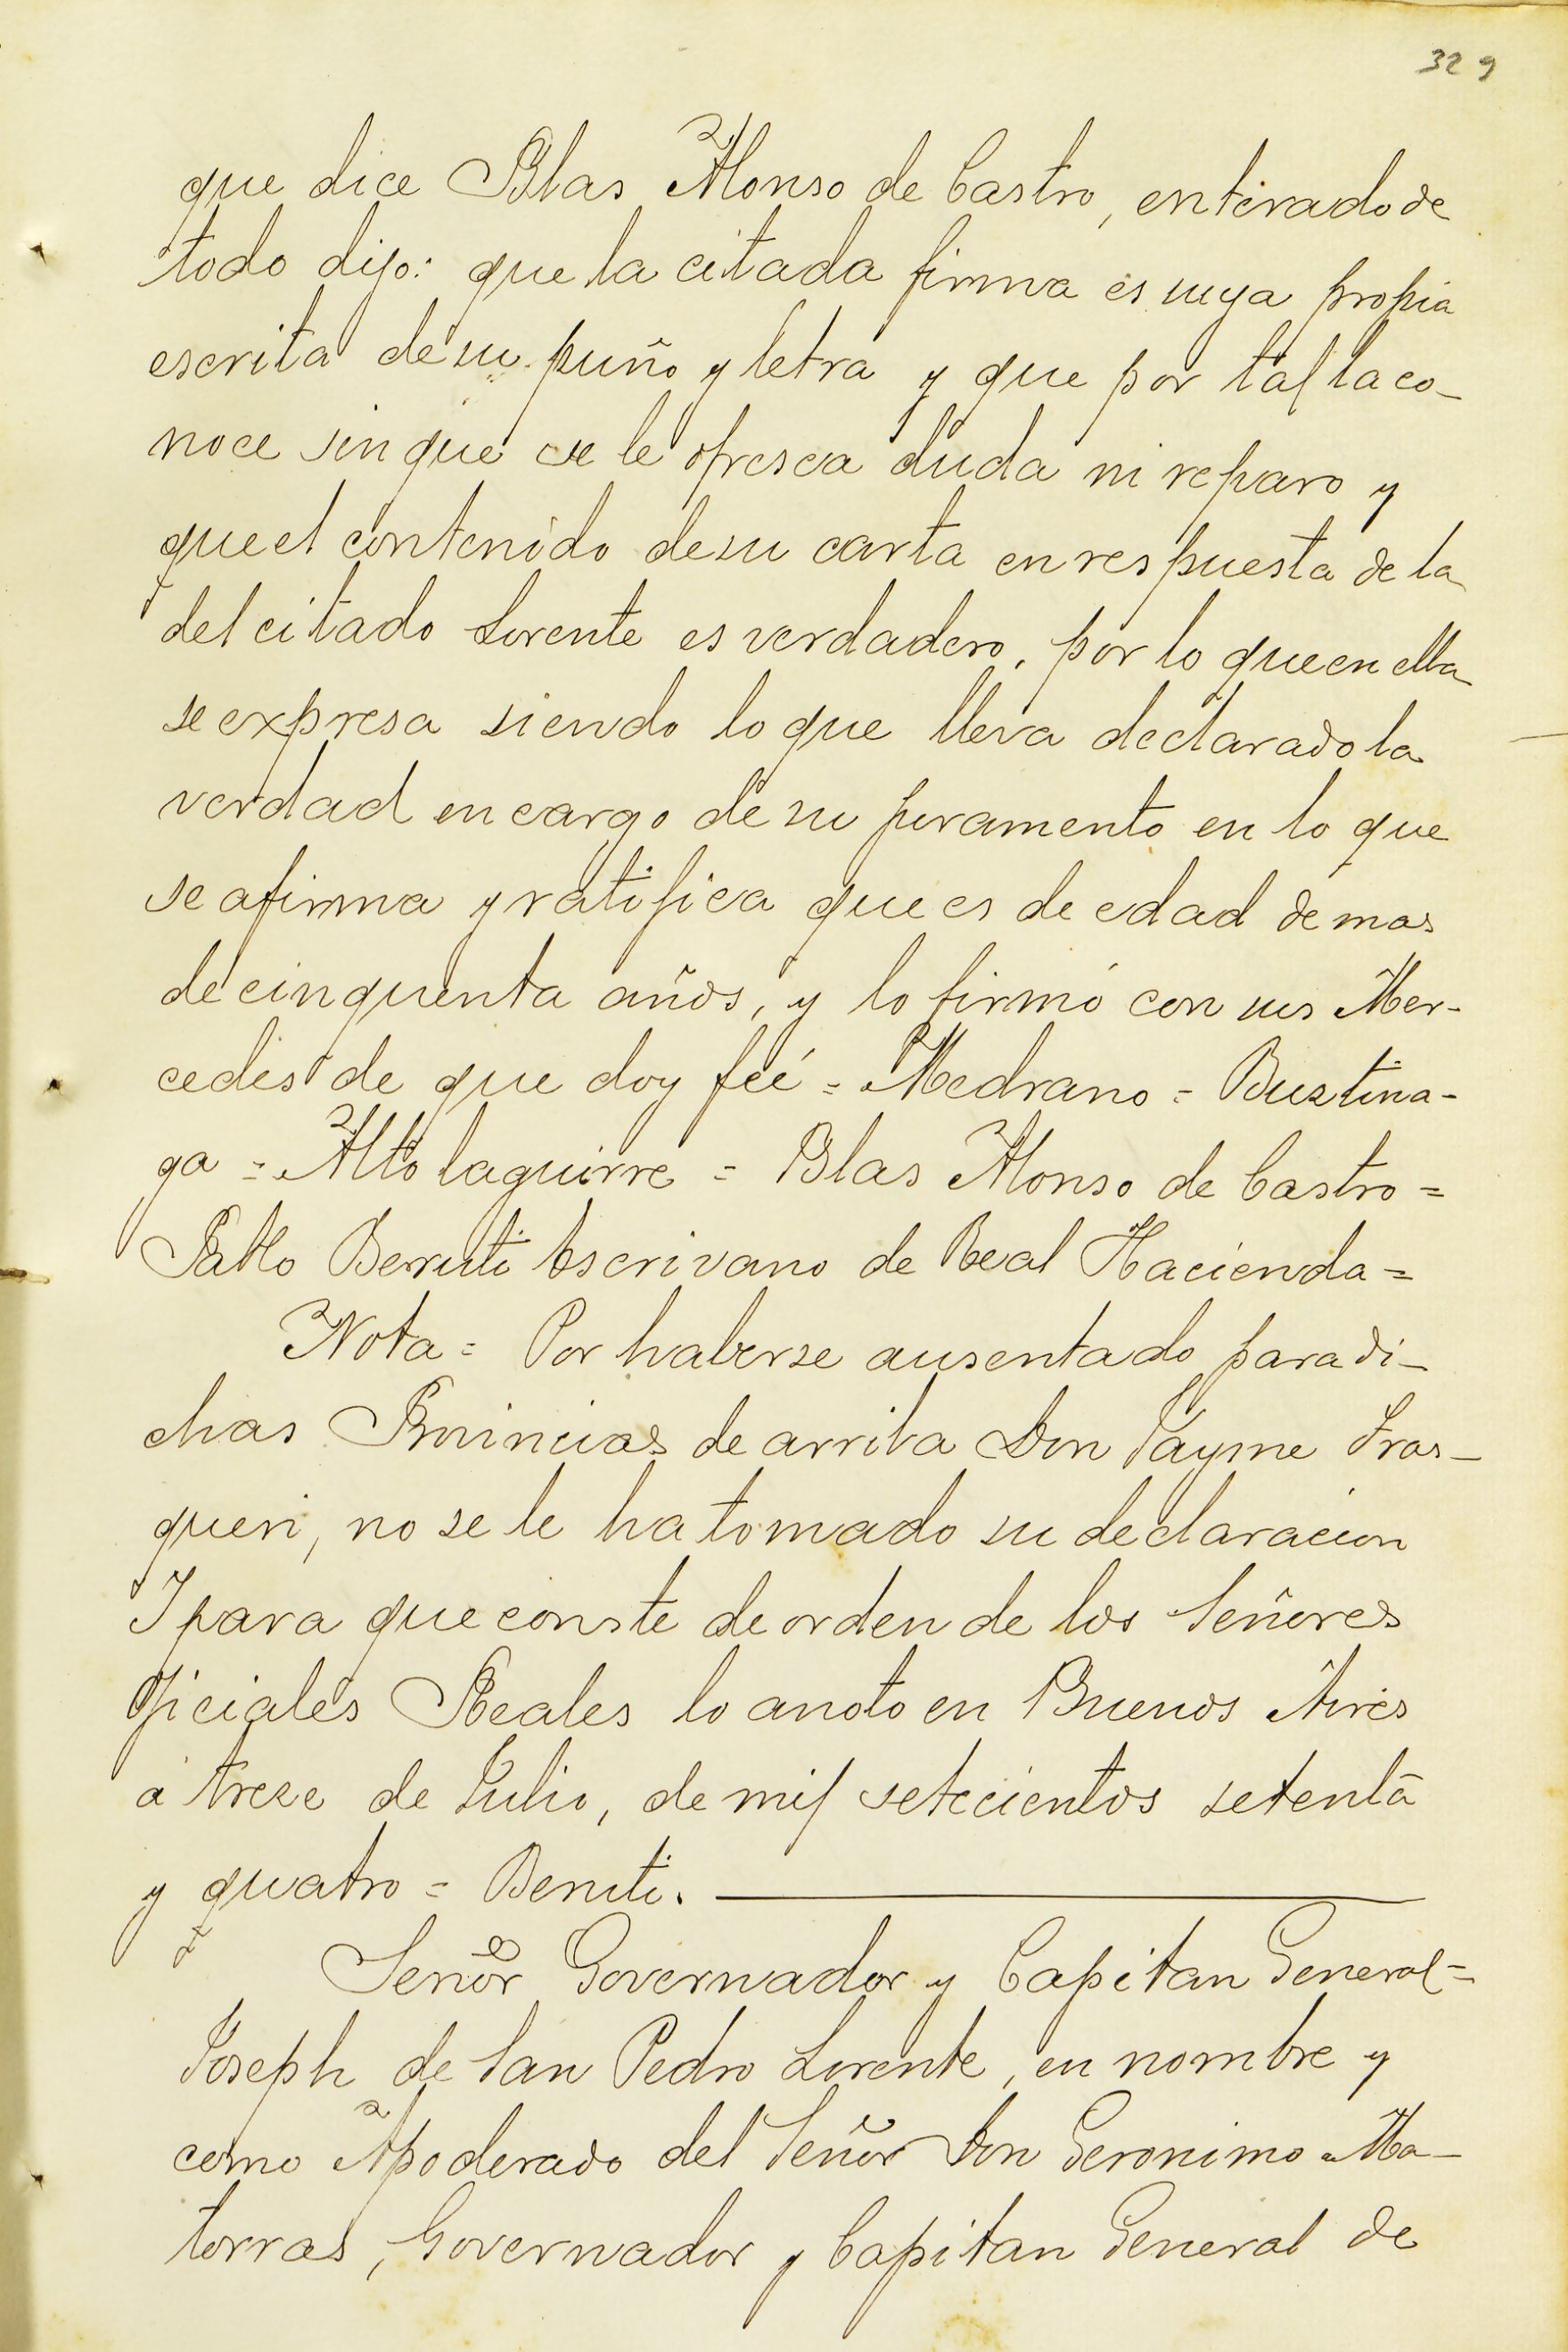 329
que dice Blas Alonso de Castro, enterado de
todo dijo: que la citada firma es suya propia
escrita de su puño y letra y que por tal la co-
noce sin que se le ofresca duda ni reparo y
que el contenido de su carta en respuesta de la
del citado Lorente es verdadero, por lo que en ella
se expresa siendo lo que lleva declarado la
verdad en cargo de su juramento en lo que
se afirma y ratifica que es de edad de mas
de cinquenta años, y lo firmó con sus Mer-
cedes de que doy feé = Medrano = Bustina-
ga = Altolaguirre = Blas Alonso de Castro =
Pablo Berruti Escrivano de Real Hacienda =
Nota = Por haberse ausentado para di-
chas Provincias de arriba Don Jayme Fras-
queri, no se le ha tomado su declaracion
Y para que conste de orden de los Señores
Oficiales Reales lo anoto en Buenos Aires
a treze de Julio, de mil setecientos setenta
y quatro = Berruti.
Señor Governador y Capitan General =
Joseph de San Pedro Lorente, en nombre y
como Apoderado del Señor Don Geronimo Ma-
torras, Governador y Capitan General de